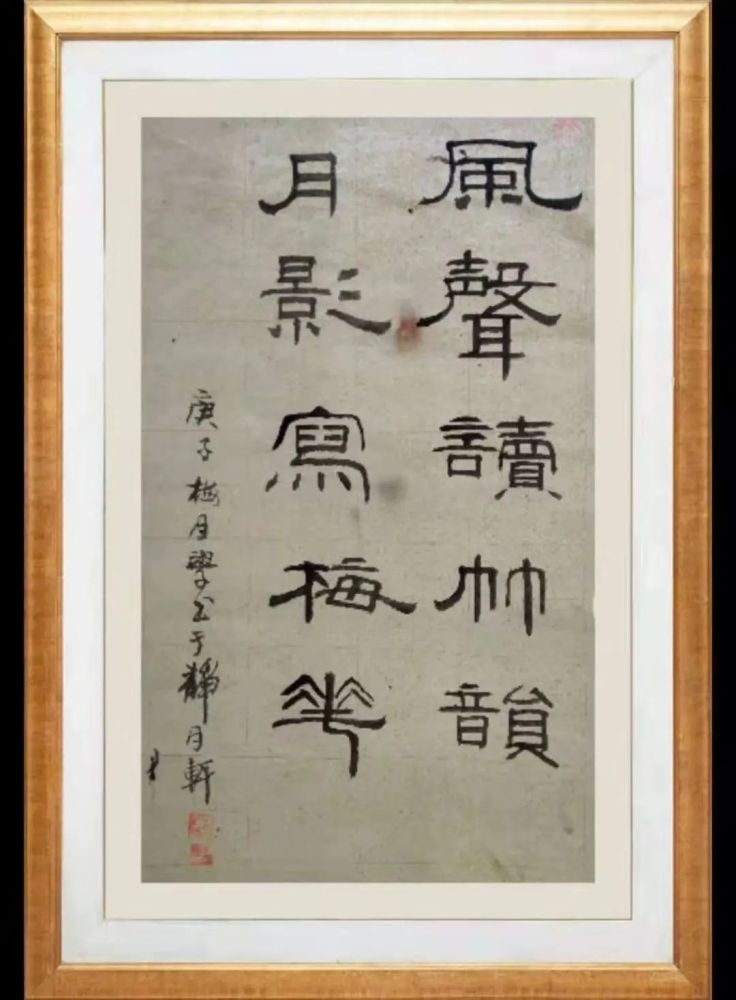 風聲讀竹韻
月影寫梅花
庚子梅月學書于靜月軒